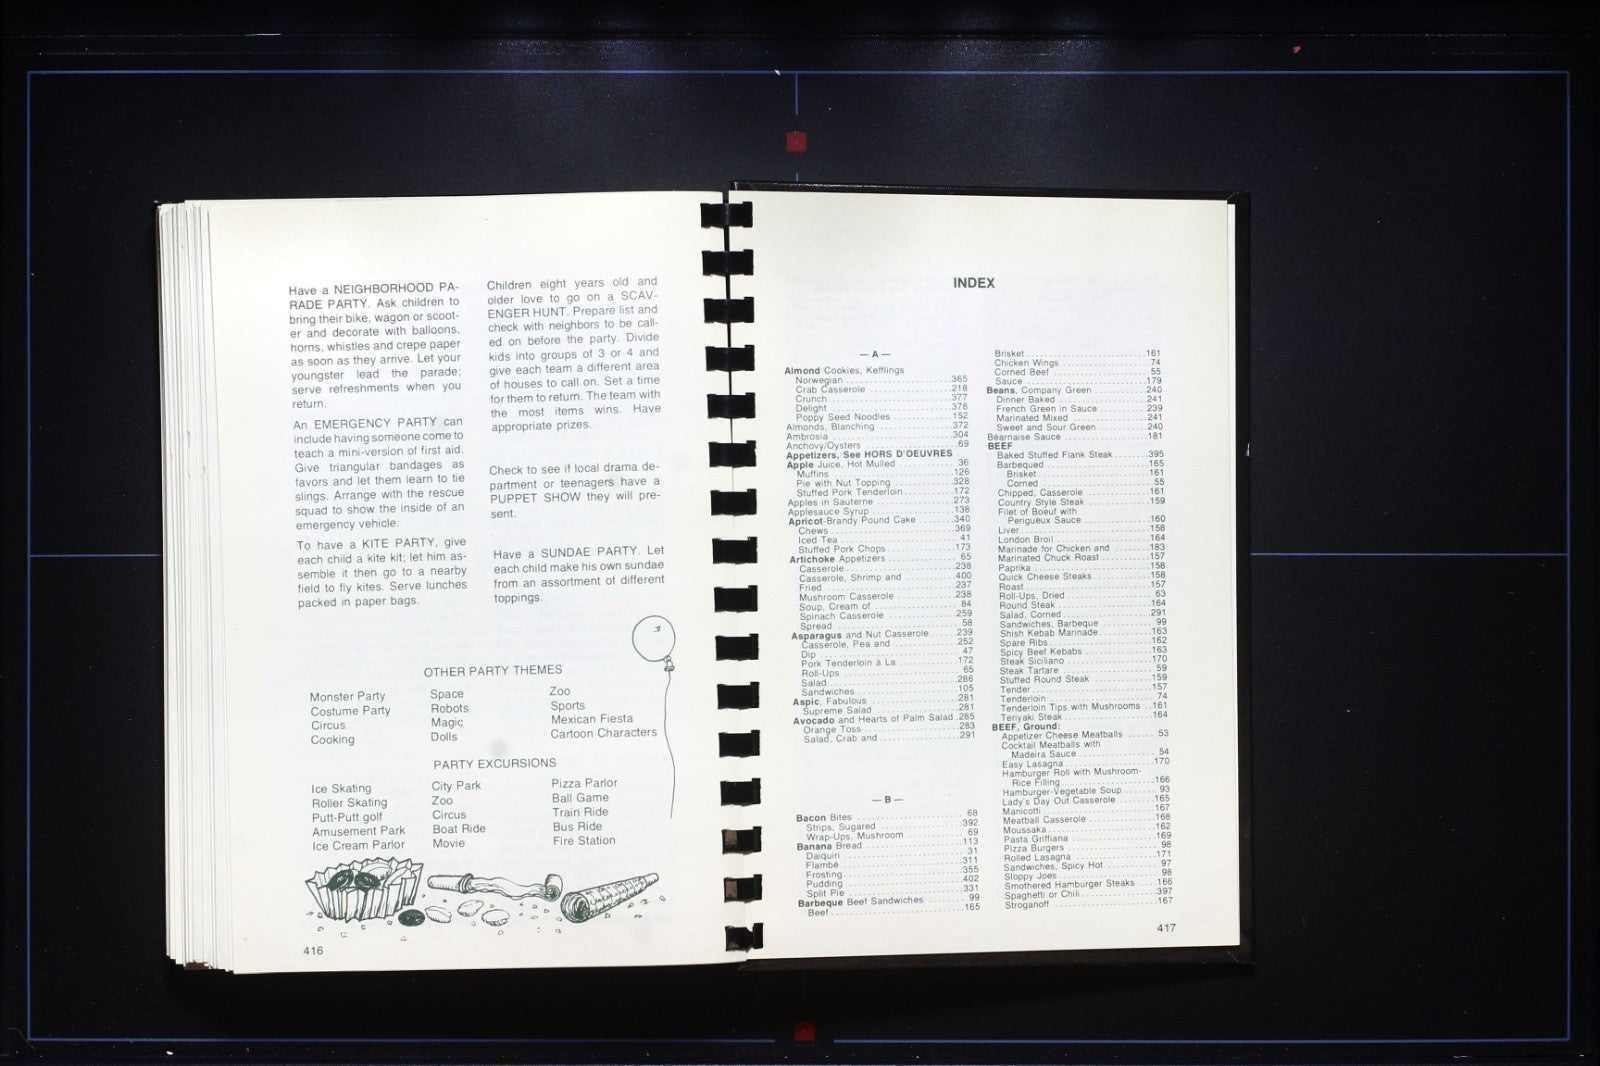 Have a NEIGHBORHOOD PA-
RADE PARTY. Ask children to
bring their bike, wagon or scoot-
er and decorate with balloons,
horns, whistles and crepe paper
as soon as they arrive. Let your
youngster lead the parade;
serve refreshments when you
return.
An EMERGENCY PARTY can
include having someone come to
teach a mini-version of first aid.
Give triangular bandages as
favors and let them learn to tie
slings. Arrange with the rescue
squad to show the inside of an
emergency vehicle.
To have a KITE PARTY, give
each child a kite kit; let him as-
semble it then go to a nearby
field to fly kites. Serve lunches
packed in paper bags.
Children eight years old and
older love to go on a SCAV-
ENGER HUNT. Prepare list and
check with neighbors to be call-
ed on before the party. Divide
kids into groups of 3 or 4 and
give each team a different area
of houses to call on. Set a time
for them to return. The team with
the most items wins. Have
appropriate prizes.
Check to see if local drama de-
partment or teenagers have a
PUPPET SHOW they will pre-
sent.
Have a SUNDAE PARTY. Let
each child make his own sundae
from an assortment of different
toppings.
OTHER PARTY THEMES
Monster Party
Costume Party
Circus
Cooking
Space
Robots
Magic
Dolls
Zoo
Sports
Mexican Fiesta
Cartoon Characters
PARTY EXCURSIONS
Ice Skating
Roller Skating
Putt-Putt golf
Amusement Park
Ice Cream Parlor
City Park
Zoo
Circus
Boat Ride
Movie
Pizza Parlor
Ball Game
Train Ride
Bus Ride
Fire Station
416
INDEX
— A —
Almond Cookies, Kefflings
Norwegian 365
Crab Casserole 218
Crunch 377
Delight 378
Poppy Seed Noodles 152
Almonds, Blanching 372
Ambrosia 304
Anchovy/Oysters 69
Appetizers, See HORS D'OEUVRES
Apple Juice, Hot Mulled 36
Muffins 126
Pie with Nut Topping 328
Stuffed Pork Tenderloin 172
Apples in Sauterne 273
Applesauce Syrup 138
Apricot-Brandy Pound Cake 340
Chews 369
Iced Tea 41
Stuffed Pork Chops 173
Artichoke Appetizers 65
Casserole 238
Casserole, Shrimp and 400
Fried 237
Mushroom Casserole 238
Soup, Cream of 84
Spinach Casserole 259
Spread 58
Asparagus and Nut Casserole 239
Casserole, Pea and 252
Dip 47
Pork Tenderloin à La 172
Roll-Ups 65
Salad 286
Sandwiches 105
Aspic, Fabulous 281
Supreme Salad 281
Avocado and Hearts of Palm Salad 285
Orange Toss 283
Salad, Crab and 291
— B —
Bacon Bites 68
Strips, Sugared 392
Wrap-Ups, Mushroom 69
Banana Bread 113
Daiquiri 31
Flambé 311
Frosting 355
Pudding 402
Split Pie 331
Barbeque Beef Sandwiches 99
Beef 165
Brisket 161
Chicken Wings 74
Corned Beef 55
Sauce 179
Beans, Company Green 240
Dinner Baked 241
French Green in Sauce 239
Marinated Mixed 241
Sweet and Sour Green 240
Béarnaise Sauce 181
BEEF
Baked Stuffed Flank Steak 395
Barbequed 165
Brisket 161
Corned 55
Chipped, Casserole 161
Country Style Steak 159
Filet of Boeuf with
Perigueux Sauce 160
Liver 158
London Broil 164
Marinade for Chicken and 183
Marinated Chuck Roast 157
Paprika 158
Quick Cheese Steaks 158
Roast 157
Roll-Ups, Dried 63
Round Steak 164
Salad, Corned 291
Sandwiches, Barbeque 99
Shish Kebab Marinade 163
Spare Ribs 162
Spicy Beef Kebabs 163
Steak Siciliano 170
Steak Tartare 59
Stuffed Round Steak 159
Tender 157
Tenderloin 74
Tenderloin Tips with Mushrooms 161
Teriyaki Steak 164
BEEF, Ground:
Appetizer Cheese Meatballs 53
Cocktail Meatballs with
Madeira Sauce 54
Easy Lasagna 170
Hamburger Roll with Mushroom-
Rice Filling 166
Hamburger-Vegetable Soup 93
Lady's Day Out Casserole 165
Manicotti 167
Meatball Casserole 168
Moussaka 162
Pasta Griffiana 169
Pizza Burgers 98
Rolled Lasagna 171
Sandwiches, Spicy Hot 97
Sloppy Joes 98
Smothered Hamburger Steaks 166
Spaghetti or Chili 397
Stroganoff 167
417